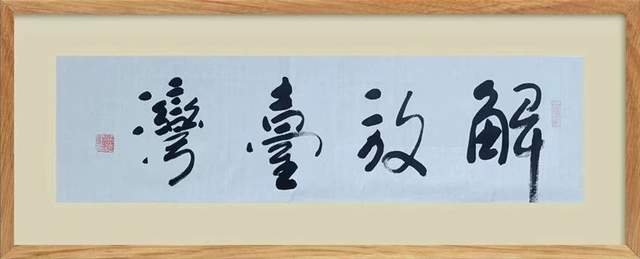 解放臺灣